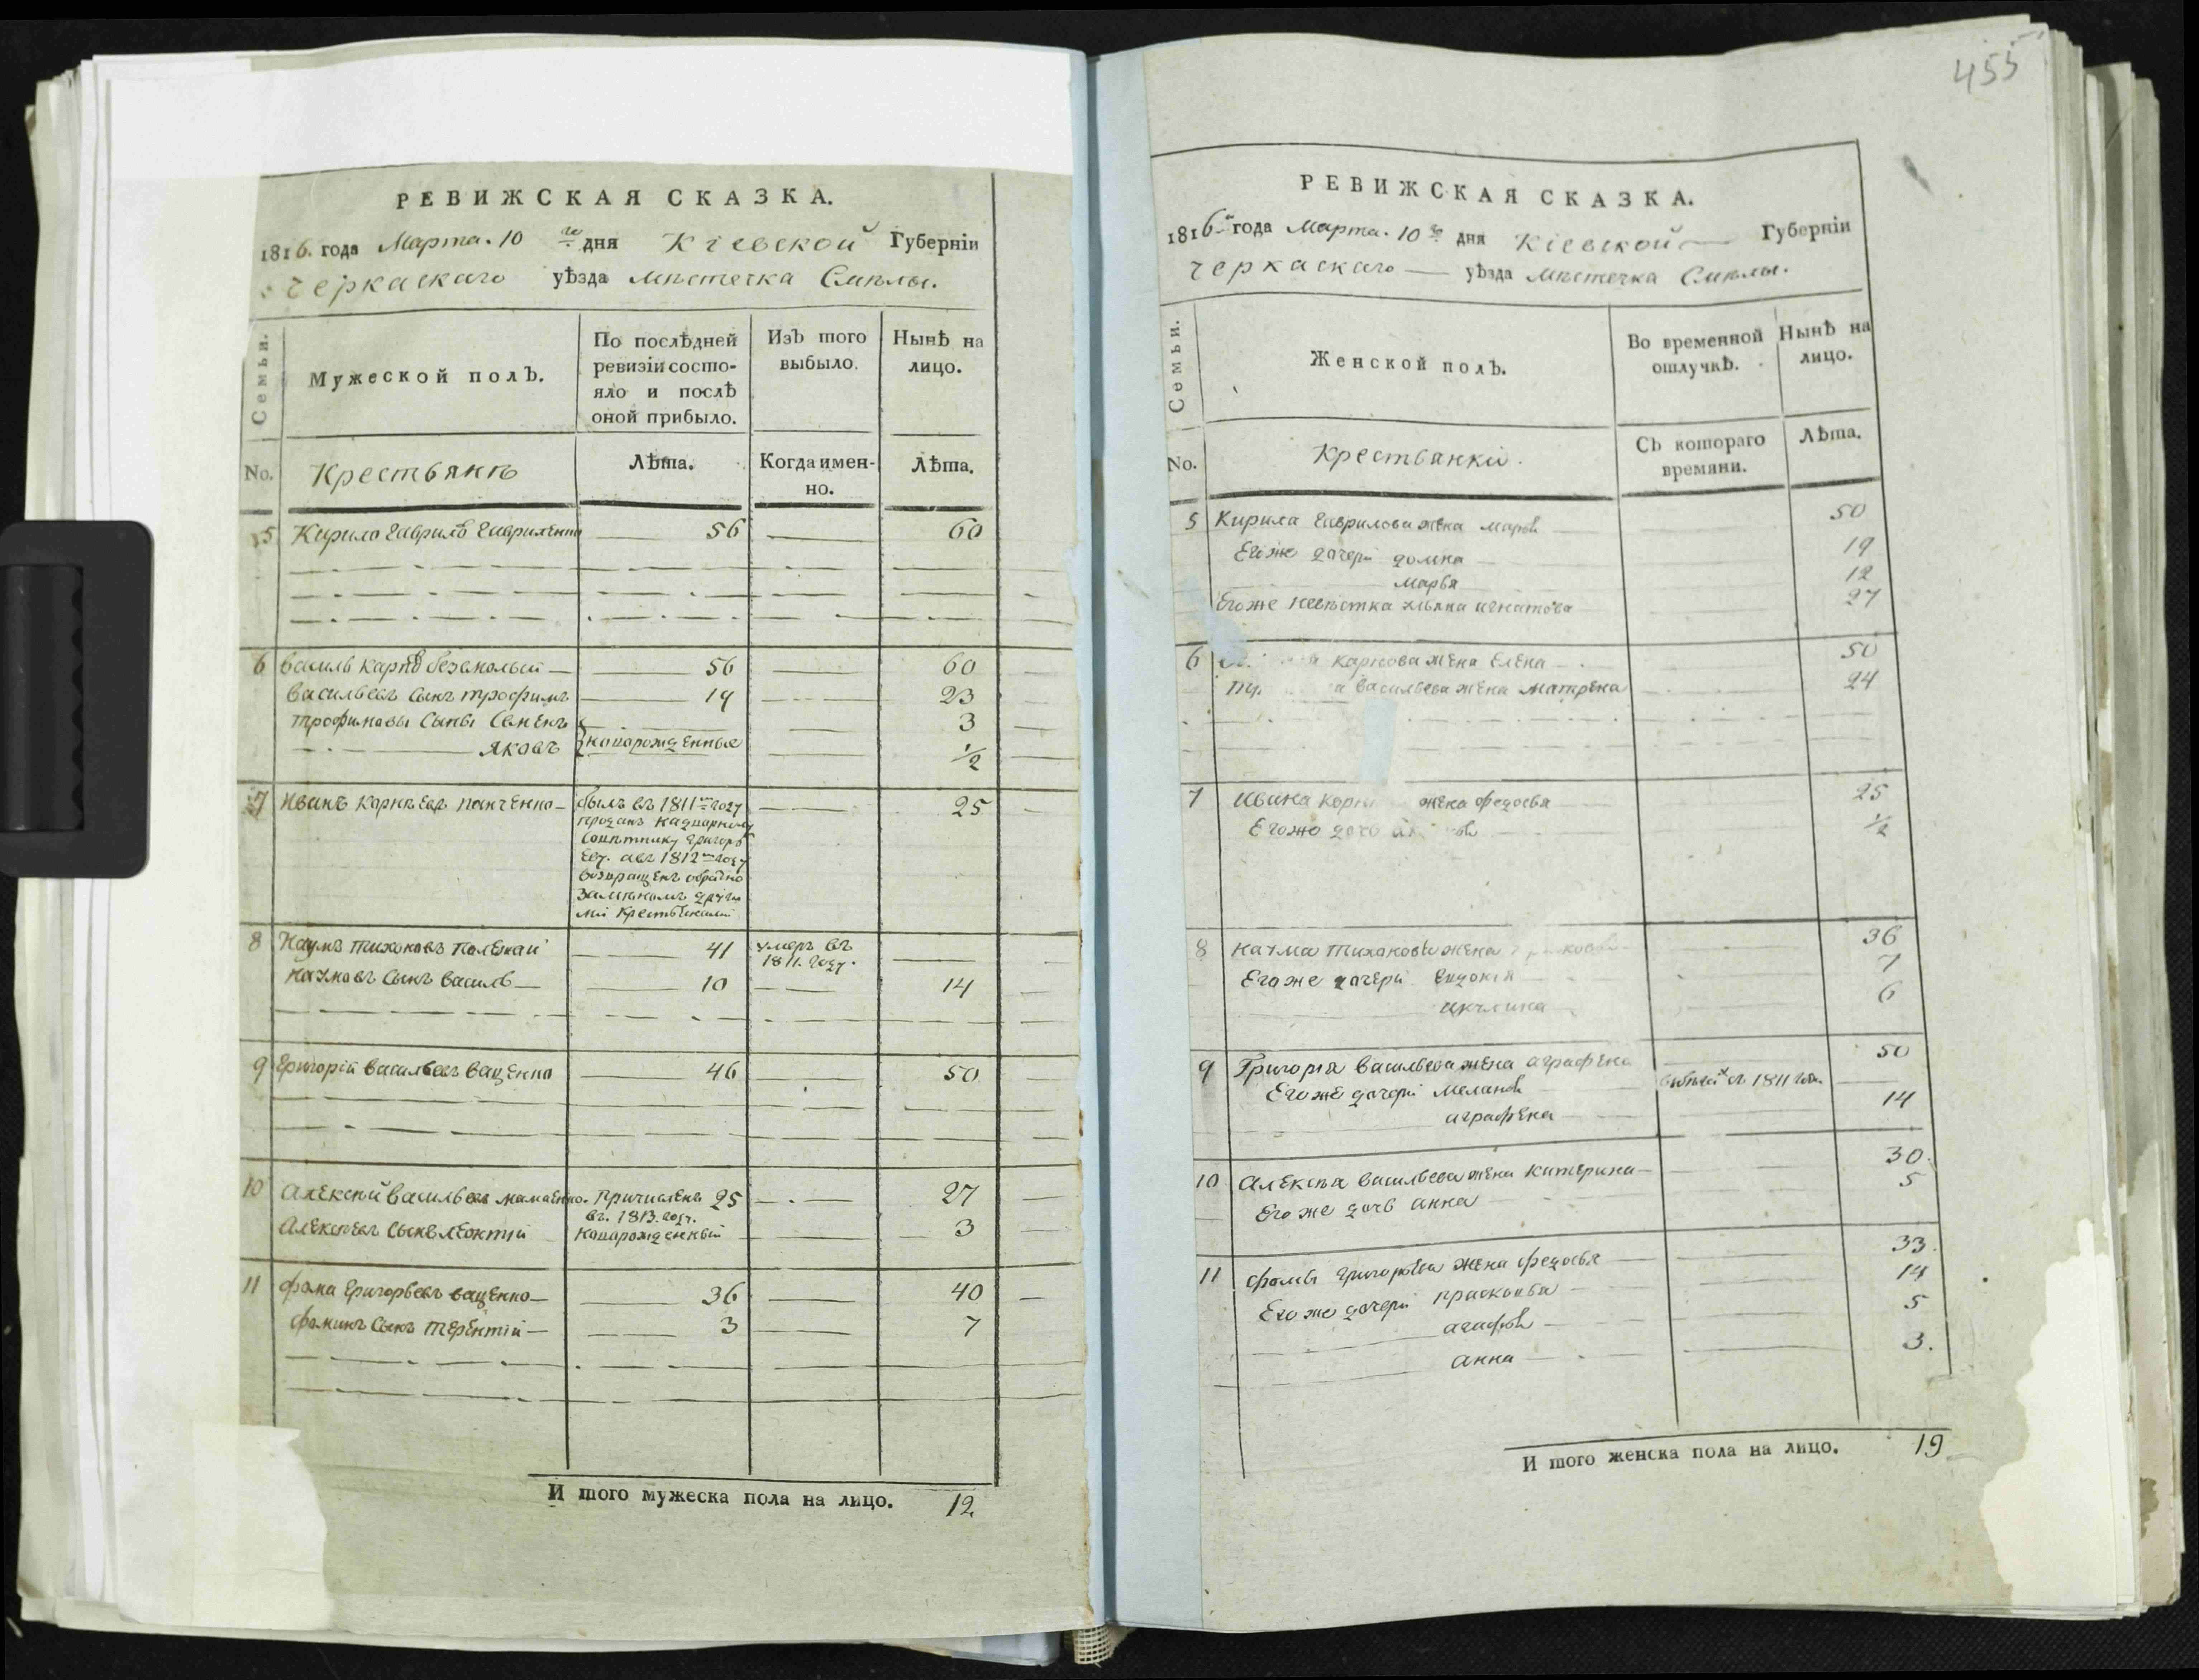 455
РЕВИЖСКАЯ СКАЗКА.
1816. года Марта. 10го дня Кіевской Губерніи
Черкаскаго уѣзда мѣстечка Смѣлы.
Семьи.
Мужеской полъ.
По послѣдней ревизіи состо-
яло и послѣ
оной прибыло.
Изъ того
выбыло.
Нынѣ на
лицо.
No.
Крестьянъ
Лѣта.
Когда имен-
но.
Лѣта.
5 Кирило Гаврилов Гавриленко 56 60
6 Василь Карпов 56 60
Васильевъ сынъ Трофимъ 19 23
Трофимовы сыны Семенъ 3
Яковъ новорожденные ½
7 Иванъ Корнѣевъ Панченко былъ въ 1811м году 25
проданъ надворному
совѣтнику Григорь
еву. а въ 1812м году
возвращенъ обратно
8 Наумъ Тихоновъ 41 умеръ въ
1811. году.
Наумовъ сынъ Василь 10 14
9 Григорій Васильевъ Ващенко 46 50
10 Алексѣй Васильевъ причисленъ 25 27
въ. 1813. году.
Алексѣевъ сынъ Леонтій новорожденный 3
11 Фома Григорьевъ Ващенко 36 40
Фоминъ сынъ Терентій 3 7
И того мужеска пола на лицо. 12
РЕВИЖСКАЯ СКАЗКА.
1816го года Марта. 10го дня Кіевской Губерніи
Черкаскаго уѣзда мѣстечка Смѣлы.
Семьи.
Женской полъ.
Во временной
отлучкѣ.
Нынѣ на
лицо.
No.
Крестьянки.
Съ котораго
времяни.
Лѣта.
5 Кирила Гаврилова жена 50
Его же дочери Домна 19
Марья 12
Его же невѣстка Ульяна Игнатова 27
6 Карпова жена Елена 50
Васильева жена Матрена 24
7 Ивана жена Федосья 25
Его же дочь ½
8 Наума Тихонова жена 36
Его же дочери Евдокія 7
Акулина 6
9 Григорія Васильева жена Аграфена 50
Его же дочери съ 1811 года
Аграфена 14
10 Алексѣя Васильева жена Катерина 30.
Его же дочь Анна 5
11 Фомы Григорьева жена Федосья 33.
Его же дочери Прасковья 14
Агафья 5
Анна 3.
И того женска пола на лицо. 19